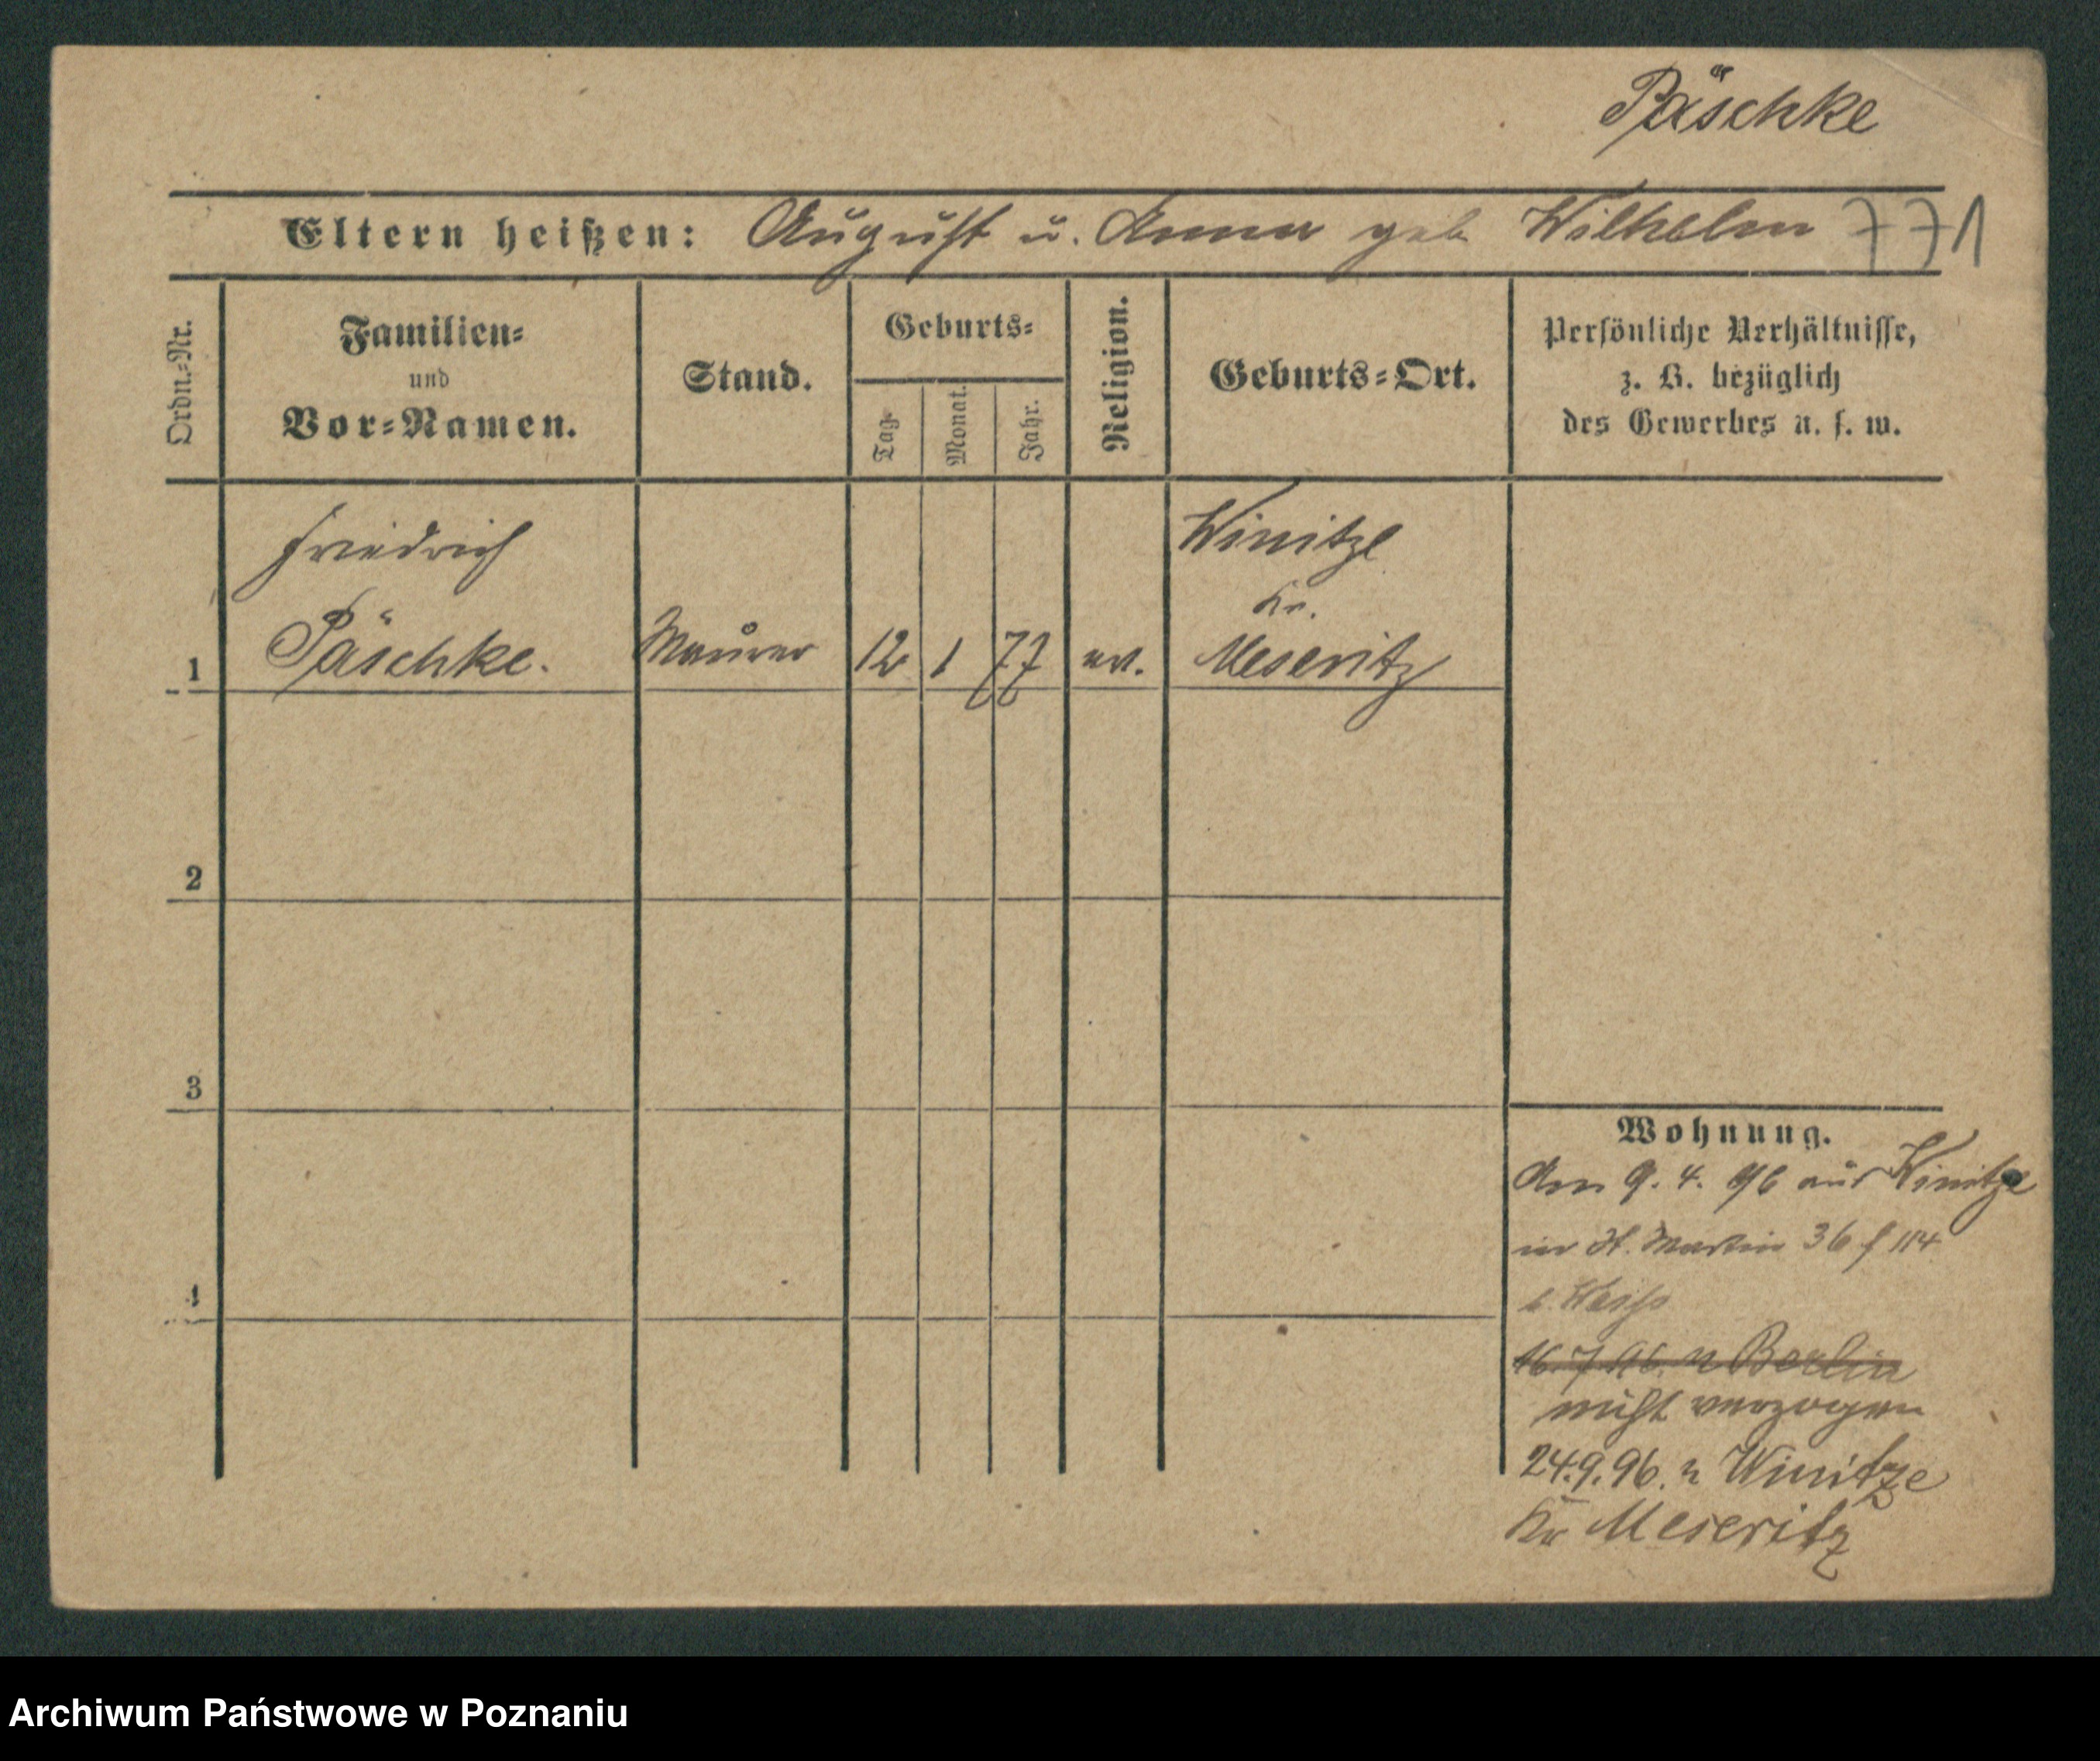 Päschke
Eltern heißen: August u. Anna geb Wilhelm 771
Ordn.-Nr.
Familien-
und
Vor-Namen.
Stand.
Geburts-
Tag
Monat.
Jahr.
Religion.
Geburts-Ort.
Persönliche Verhältnisse,
z. B. bezüglich
des Gewerbes u. s. w.
Friedrich
Päschke.
Winitze
Kr.
1 Maurer 12 1 77 ev. Meseritz
2
3
4
Wohnung.
Am 9. 4. 96 aus Winitze
in St. Martin 36 f 114
b. Weiß
16.7.96. n Berlin
nicht verzogen
24.9.96. n Winitze
Kr Meseritz
Archiwum Państwowe w Poznaniu